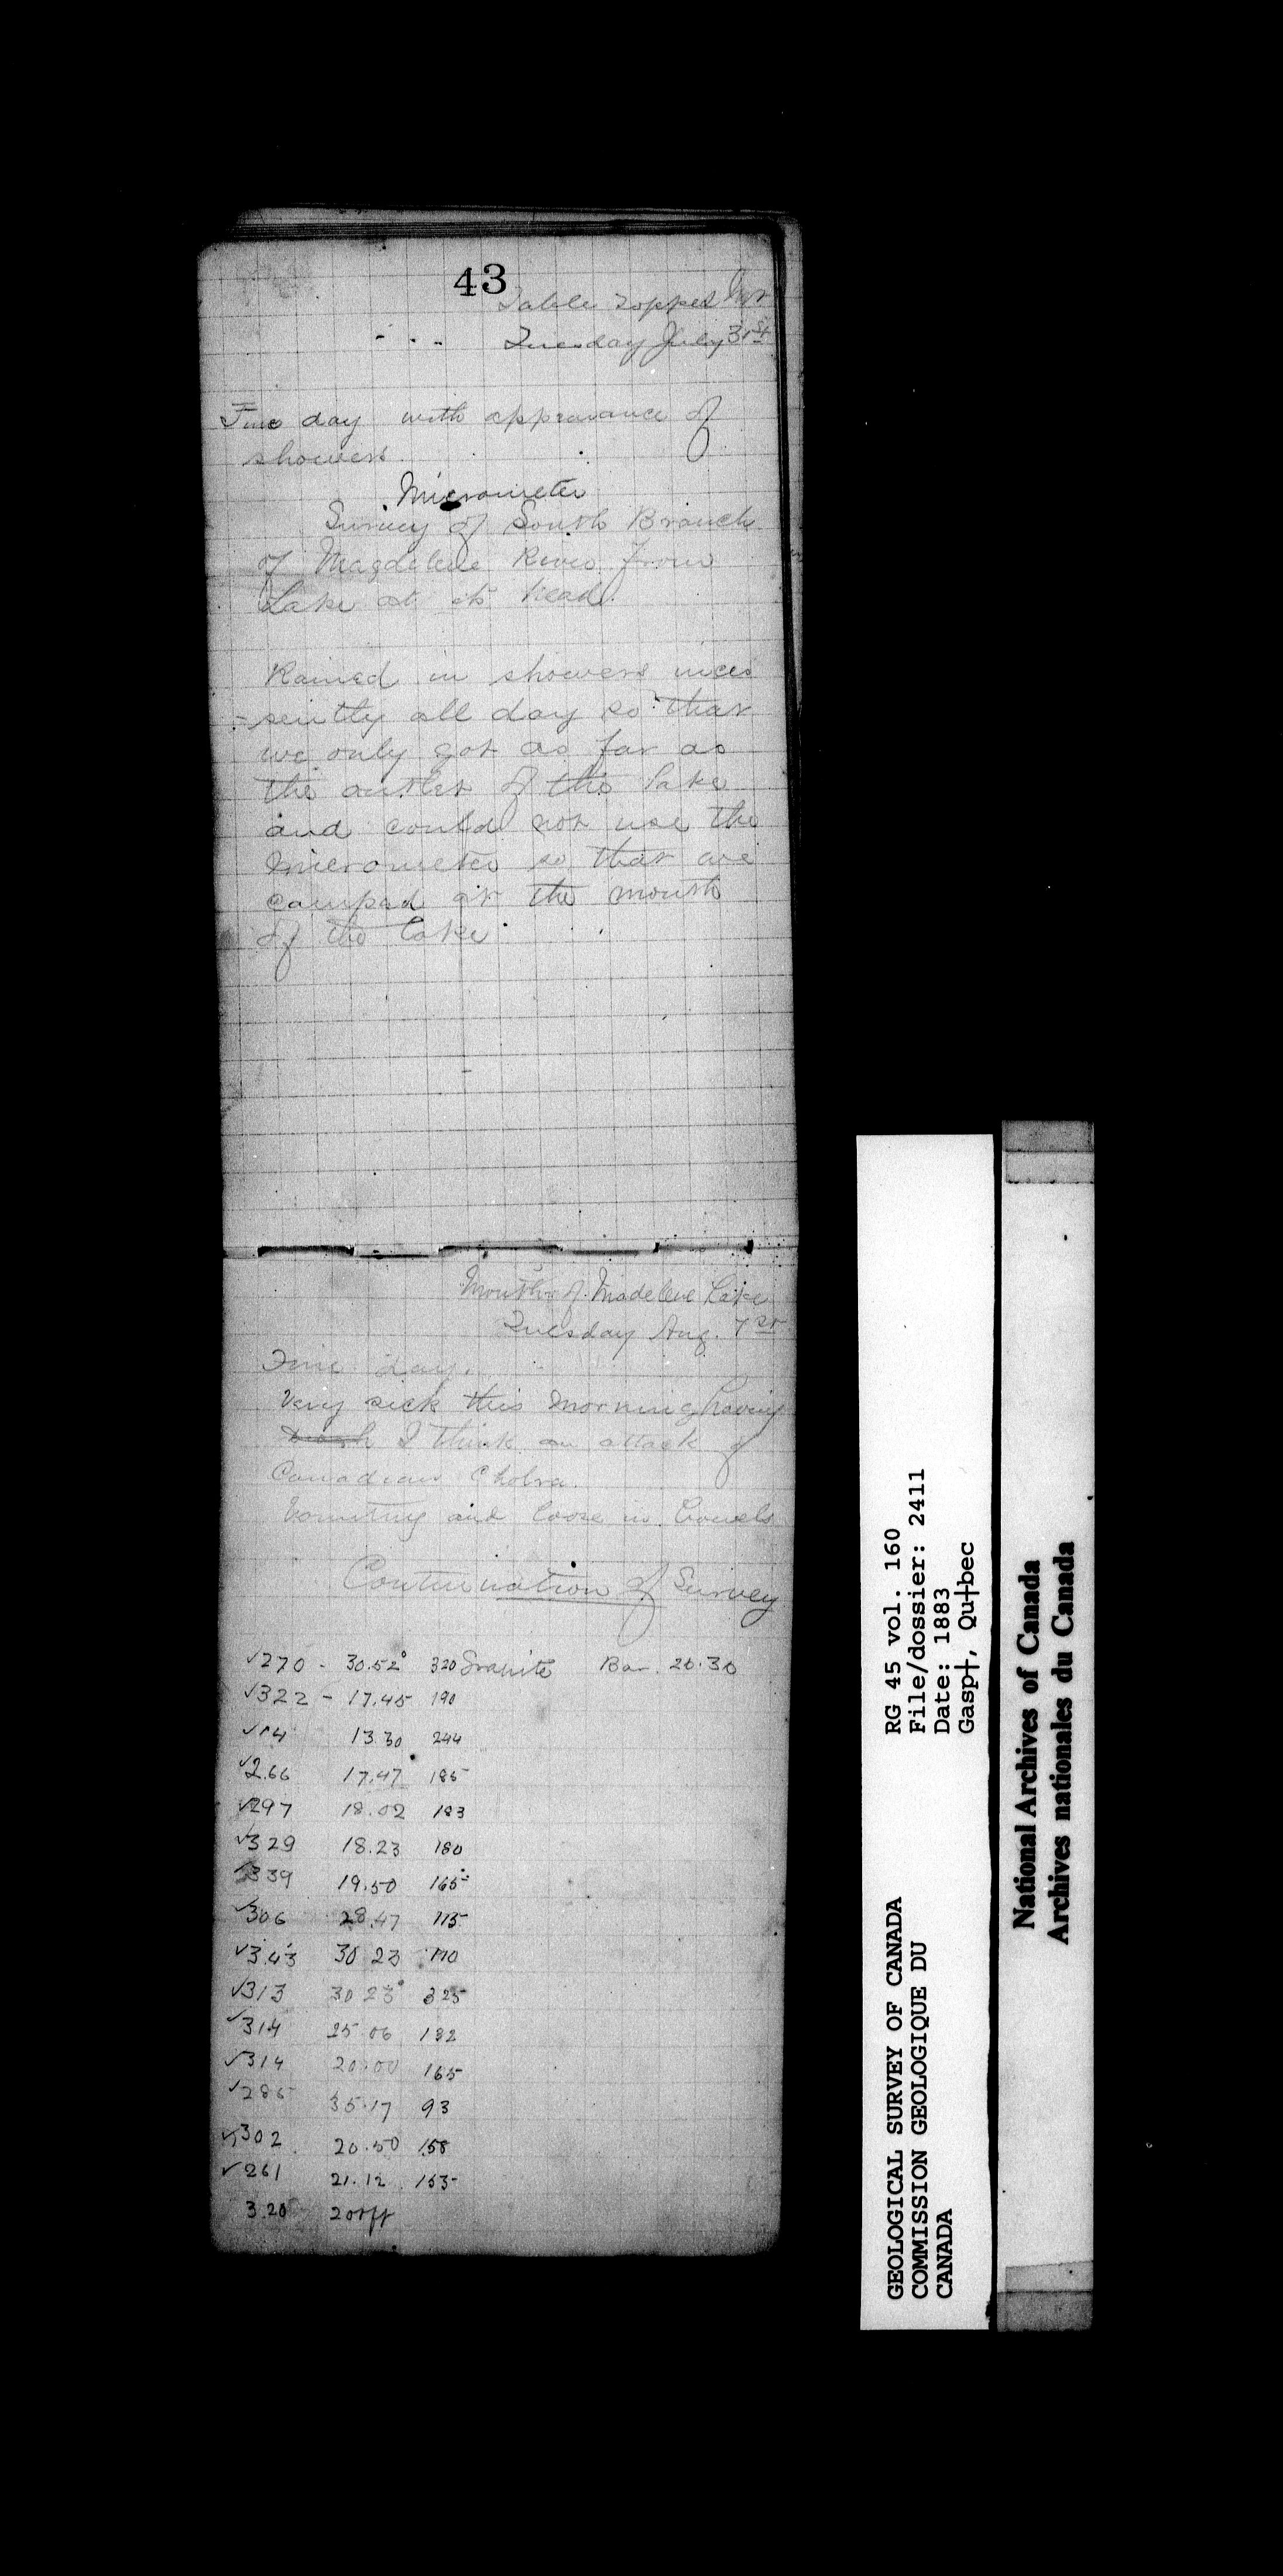 43
Table Topped Mt
Tuesday July 31st
Fine day with appearance of
showers.
Micrometer
Survey of South Branch
of Magdelene River from
Lake at its head.
Rained in showers inces
=sently all day so that
we only got as far as
the outlet of the lake
and could not use the
micrometer so that we
camped at the mouth
of the lake
Mouth of Madelene Lake
Tuesday Aug. 1st
Fine day.
Very sick this morning having
I think an attack of
Canadian Cholra.
Vomiting and loose in bowels
Continuation of Survey
√270 - 30.52 320 Granite Bar. 26.30
√322 - 17.45 190
√14 13.30 244
√266 17.47 185
√297 18.02 183
√329 18.23 180
√339 19.50 165
√306 28.47 115
√343 30 23 110
√313 30 23 325
√314 25.06 132
√314 20.00 165
√285 35.17 93
√302 20.50 158
√261 21.12 155
320 20 ft
RG 45 vol. 160
File/dossier: 2411
Date: 1883
Gasp†, Qu†bec
GEOLOGICAL SURVEY OF CANADA
COMMISSION GEOLOGIQUE DU
CANADA
National Archives of Canada
Archives nationales du Canada